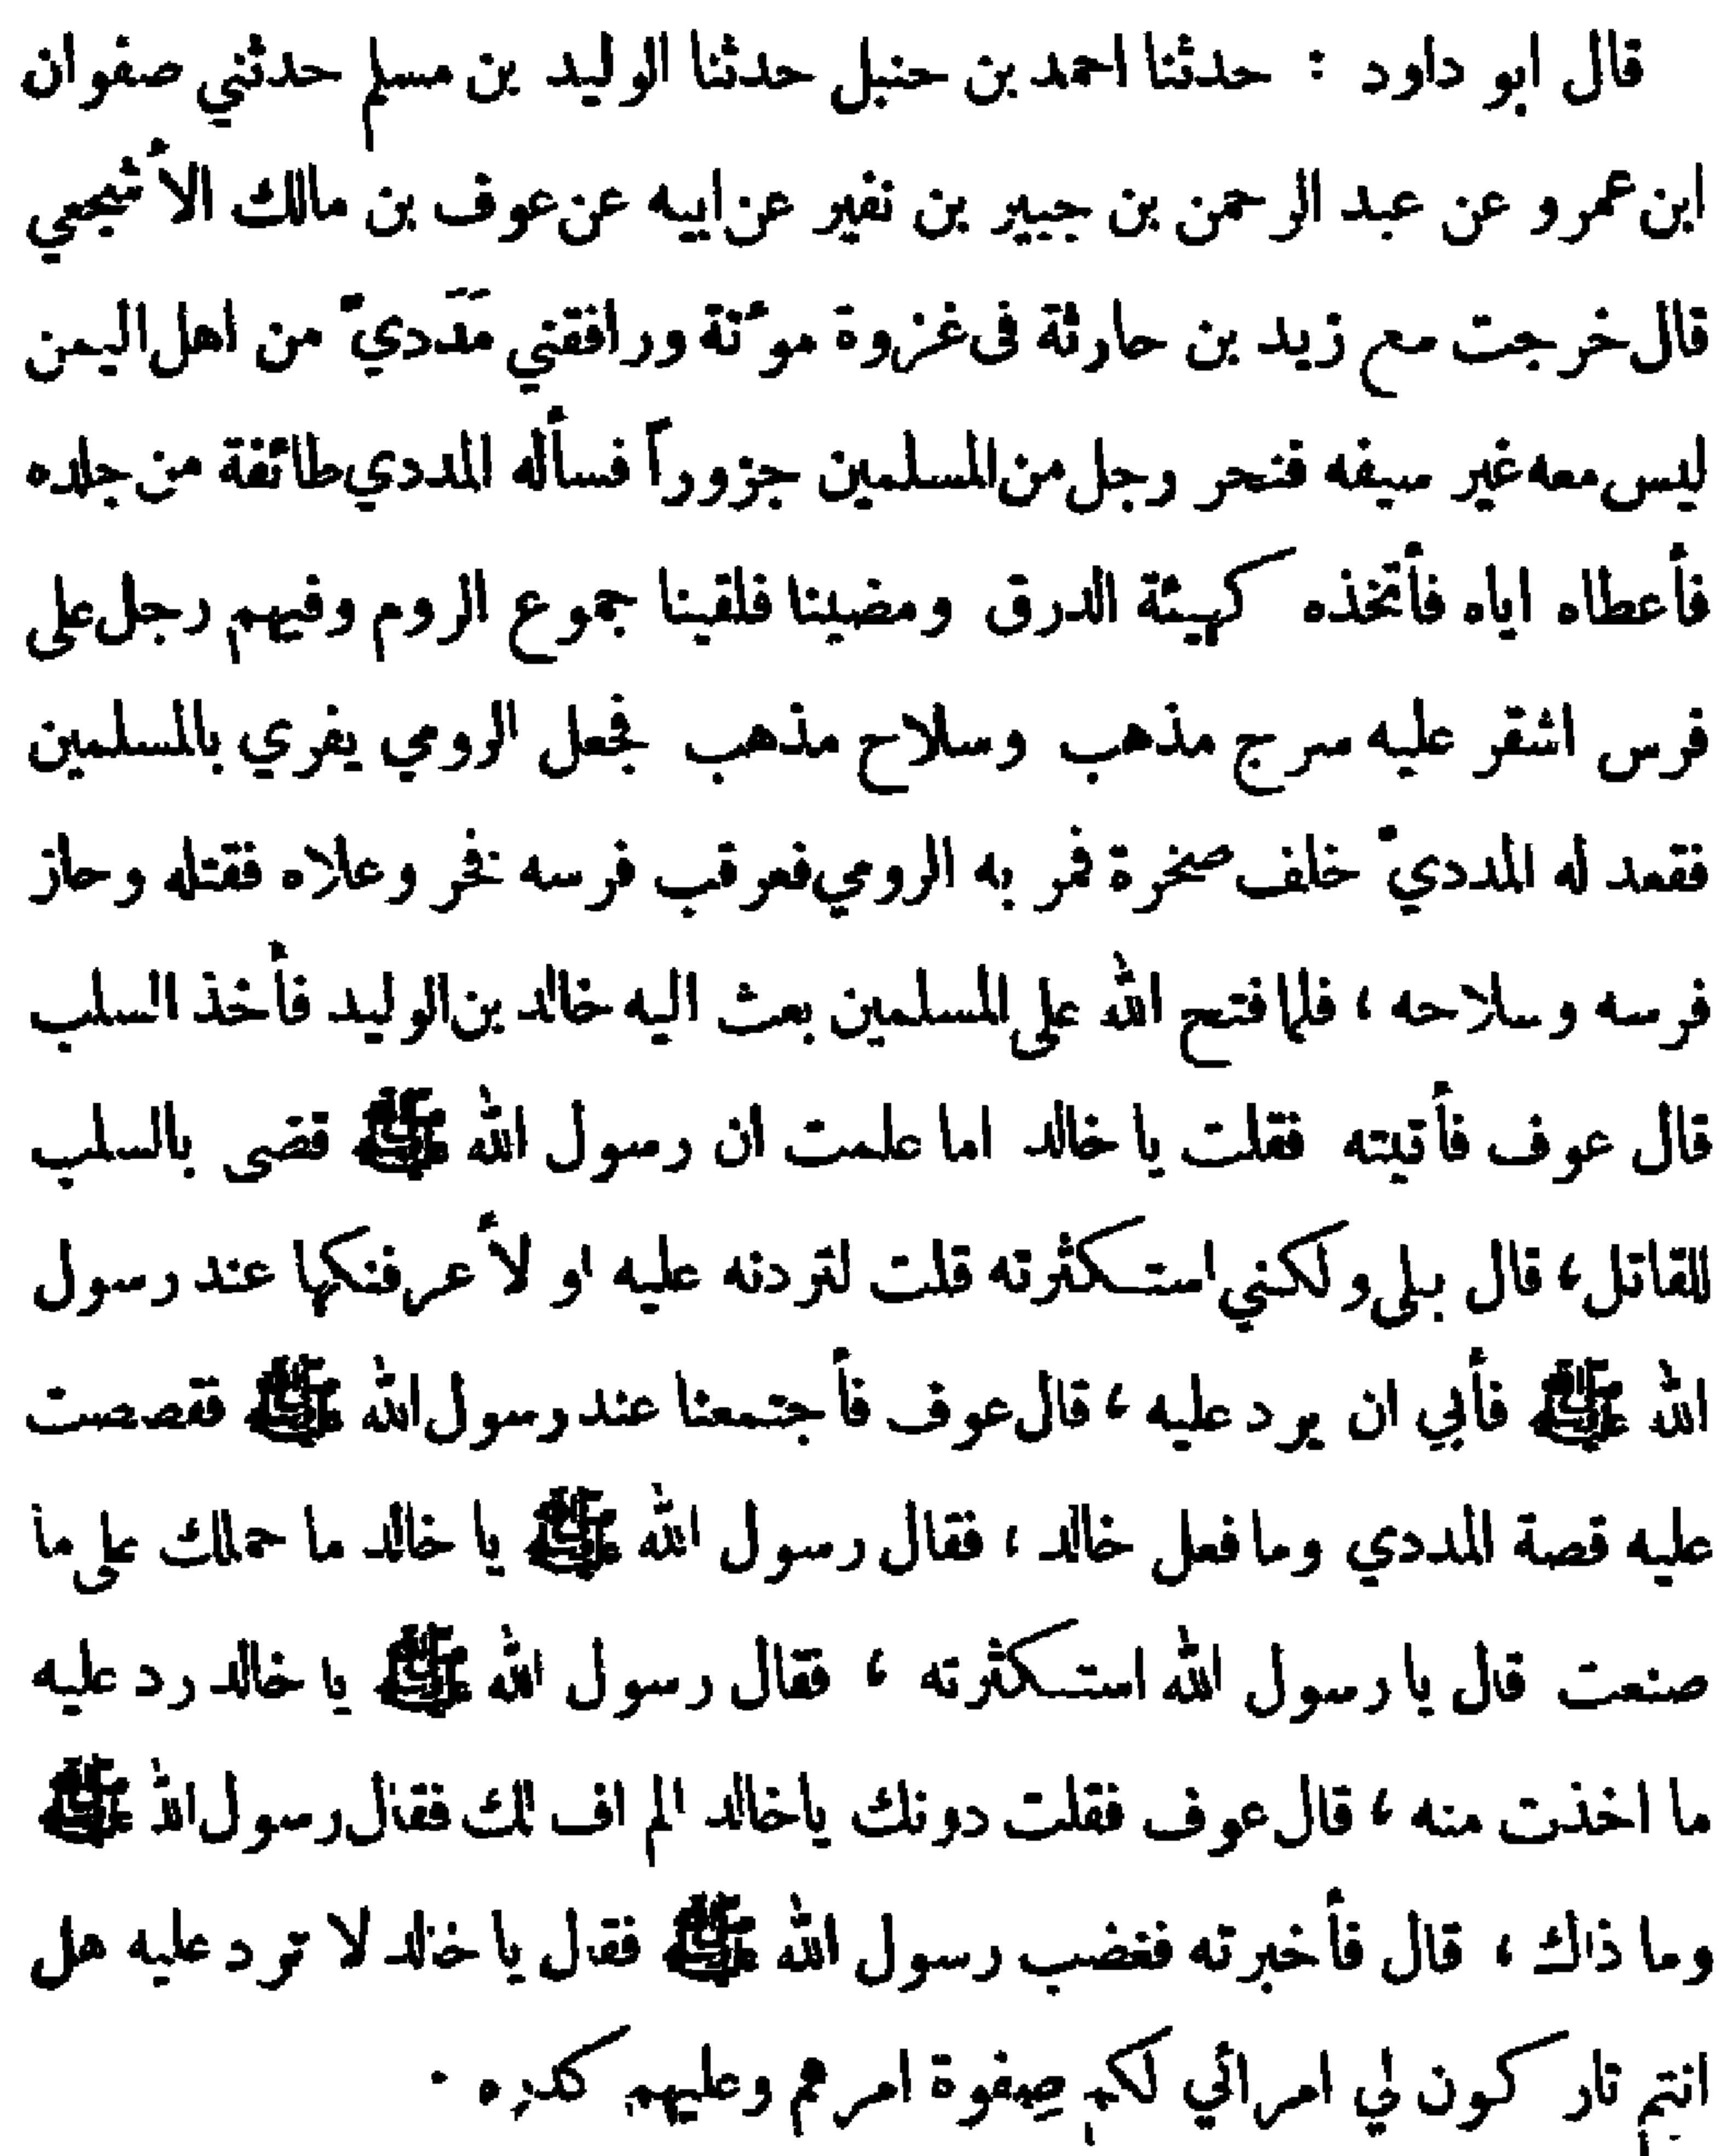 قال ابو داود : حدثنا احمد بن حنبل حدثنا الوليد بن مسلم حدثني صفوان
ابن عمرو عن عبد الرحمن بن جبير بن نفير عن ابيه عن عوف بن مالك الأشجعي
قال خرجت مع زيد بن حارثة فى غزوة موءتة ورافقني مَدَدديّ من اهل اليمن
ليس معه غير سيفه فنحر رجل من المسلمين جزوراً فسأله المددي طائفة من جلده
فأعطاه اياه فأتخذه كهيئة الدرق ومضينا فلقينا جموع الروم وفيهم رجل على
فرس اشقر عليه سرج مذهب وسلاح مذهب فجعل الرومي يفري بالمسلمين
فقعد له المدديّ خلف صخرة فمر به الرومي فعرقب فرسه فخر وعلاه فقتله وحاز
فرسه وسلاحه ، فلما فتح الله على المسلمين بعث اليه خالد بن الوليد فأخذ السلب
قال عوف فأتيته فقلت يا خالد اما علمت ان رسول الله ﷺ قضى بالسلب
للقاتل ، قال بلى ولكني استكثرته قلت لتردنه عليه او لأعرفنكها عند رسول
الله ﷺ فأبي ان يرد عليه ، قال عوف فأجتمعنا عند رسول الله ﷺ فقصصت
عليه قصة المددي وما فعل خالد ، فقال رسول الله ﷺ يا خالد ما حملك على ما
صنعت قال يا رسول الله استكثرته ، فقال رسول الله ﷺ يا خالد رد عليه
ما اخذت منه ، قال عوف فقلت دونك يا خالد الم اف لك فقال رسول الله ﷺ
وما ذاك ، قال فأخبرته فغضب رسول الله ﷺ فقال يا خالد لا ترد عليه هل
انتم تاركون لي امرائي لكم صِفوة امرهم وعليهم كدره .